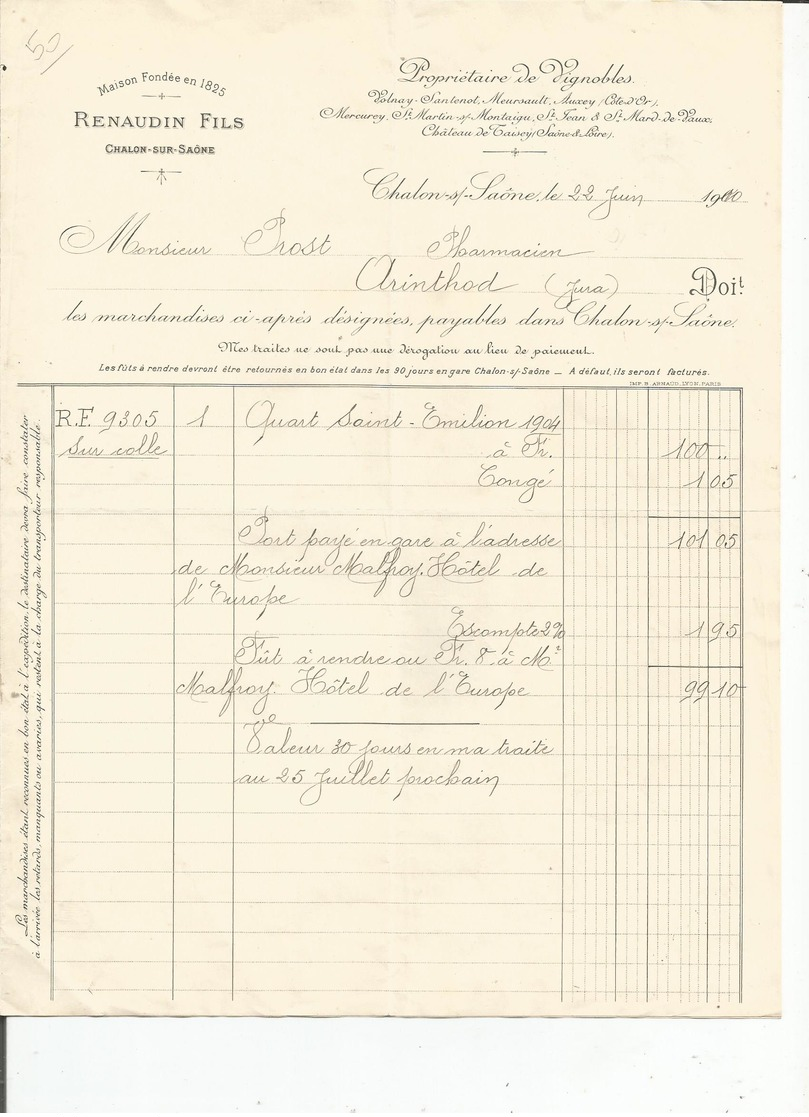 50
Maison Fondée en 1825
RENAUDIN FILS
CHALON-SUR-SAÔNE
Propriétaire de Vignobles.
Volnay-Santenot, Meursault, Auxey (Côte d'Or),
Mercurey, St Martin-s/-Montaigu, St Jean & St Mard-de-Vaux,
Château de Taisey (Saône & Loire).
Chalon-s/-Saône, le 22 Juin 1910
Monsieur Prost Pharmacien
Arinthod (Jura) Doit
les marchandises ci-après désignées, payables dans Chalon-s/-Saône.
Mes traites ne sont pas une dérogation au lieu de paiement.
Les fûts à rendre devront être retournés en bon état dans les 90 jours en gare Chalon-s/-Saône _ A défaut, ils seront facturés.
IMP. B. ARNAUD, LYON, PARIS
R.F. 9305 1 Quart Saint-Emilion 1904
Sur colle à Fr. 100 ..
Congé 1 05
Port payé en gare à l'adresse 101 05
de Monsieur Malfroy. Hôtel de
l'Europe
Escompte 2% 1 95
Fût à rendre ou Fr. 8. à Mr
Malfroy. Hôtel de l'Europe 99 10
Valeur 30 jours en ma traite
au 25 Juillet prochain
Les marchandises étant reconnues en bon état à l'expédition, le destinataire devra faire constater
à l'arrivée les retards, manquants ou avaries, qui restent à la charge du transporteur responsable.